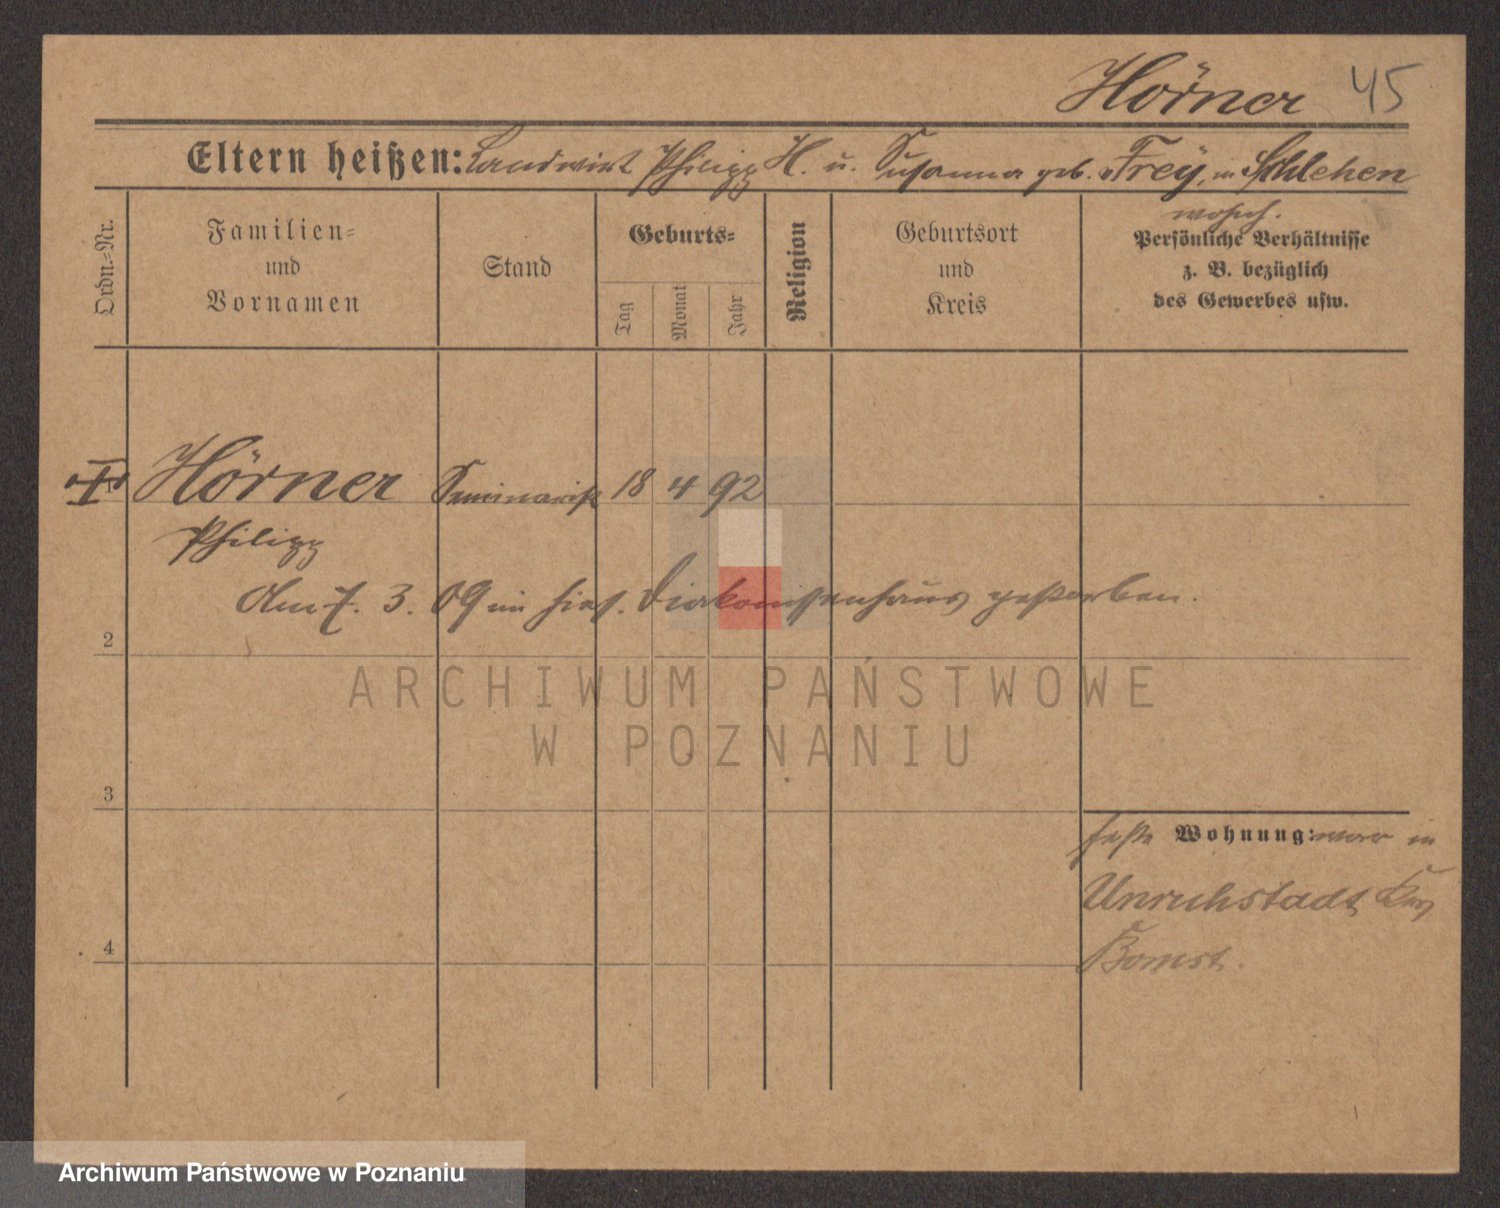 Hörner 45
Eltern heißen: Landwirt Philipp H. u. Susanna geb. Frey, in Schlehen
wohnh.
Ordn.-Nr.
Familien-
und
Vornamen
Stand
Geburts-
Tag
Monat
Jahr
Religion
Geburtsort
und
Kreis
Persönliche Verhältnisse
z. B. bezüglich
des Gewerbes usw.
Hörner Seminarist 18 4 92
Philipp
Am 7. 3. 09 im hies. Diakonissenhaus gestorben.
2
ARCHIWUM PAŃSTWOWE
W POZNANIU
3
feste Wohnung: war in
Unruhstadt, Krs
Bomst.
4
Archiwum Państwowe w Poznaniu